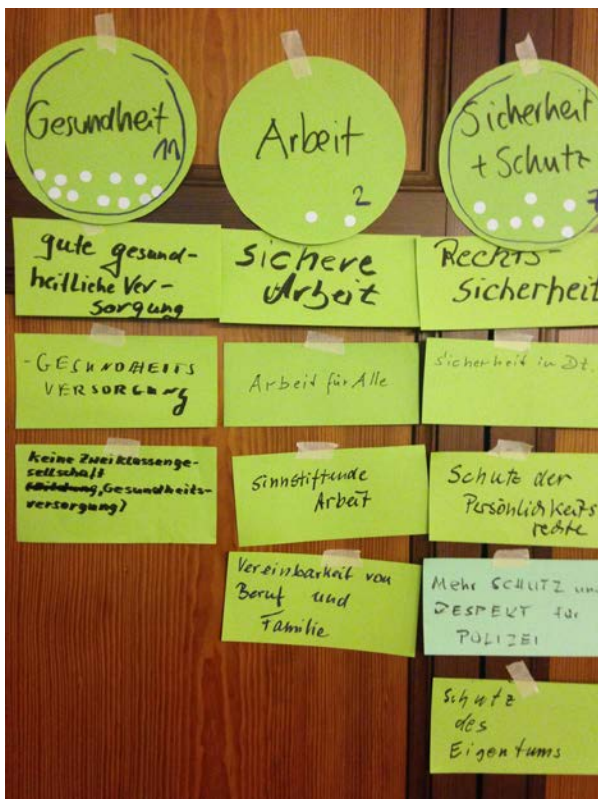 Gesundheit
11
gute gesund-
heitliche Ver-
sorgung
-GESUNDHEITS
VERSORGUNG
Keine Zweiklassenge-
sellschaft
(Bildung, Gesundheits-
versorgung)
Arbeit
2
sichere
Arbeit
Arbeit für Alle
Sinnstiftende
Arbeit
Vereinbarkeit von
Beruf und
Familie
Sicherheit
+ Schutz
7
Rechts-
sicherheit
Sicherheit in Dt.
Schutz der
Persönlichkeits
rechte
Mehr SCHUTZ und
RESPEKT für
POLIZEI
Schutz
des
Eigentums